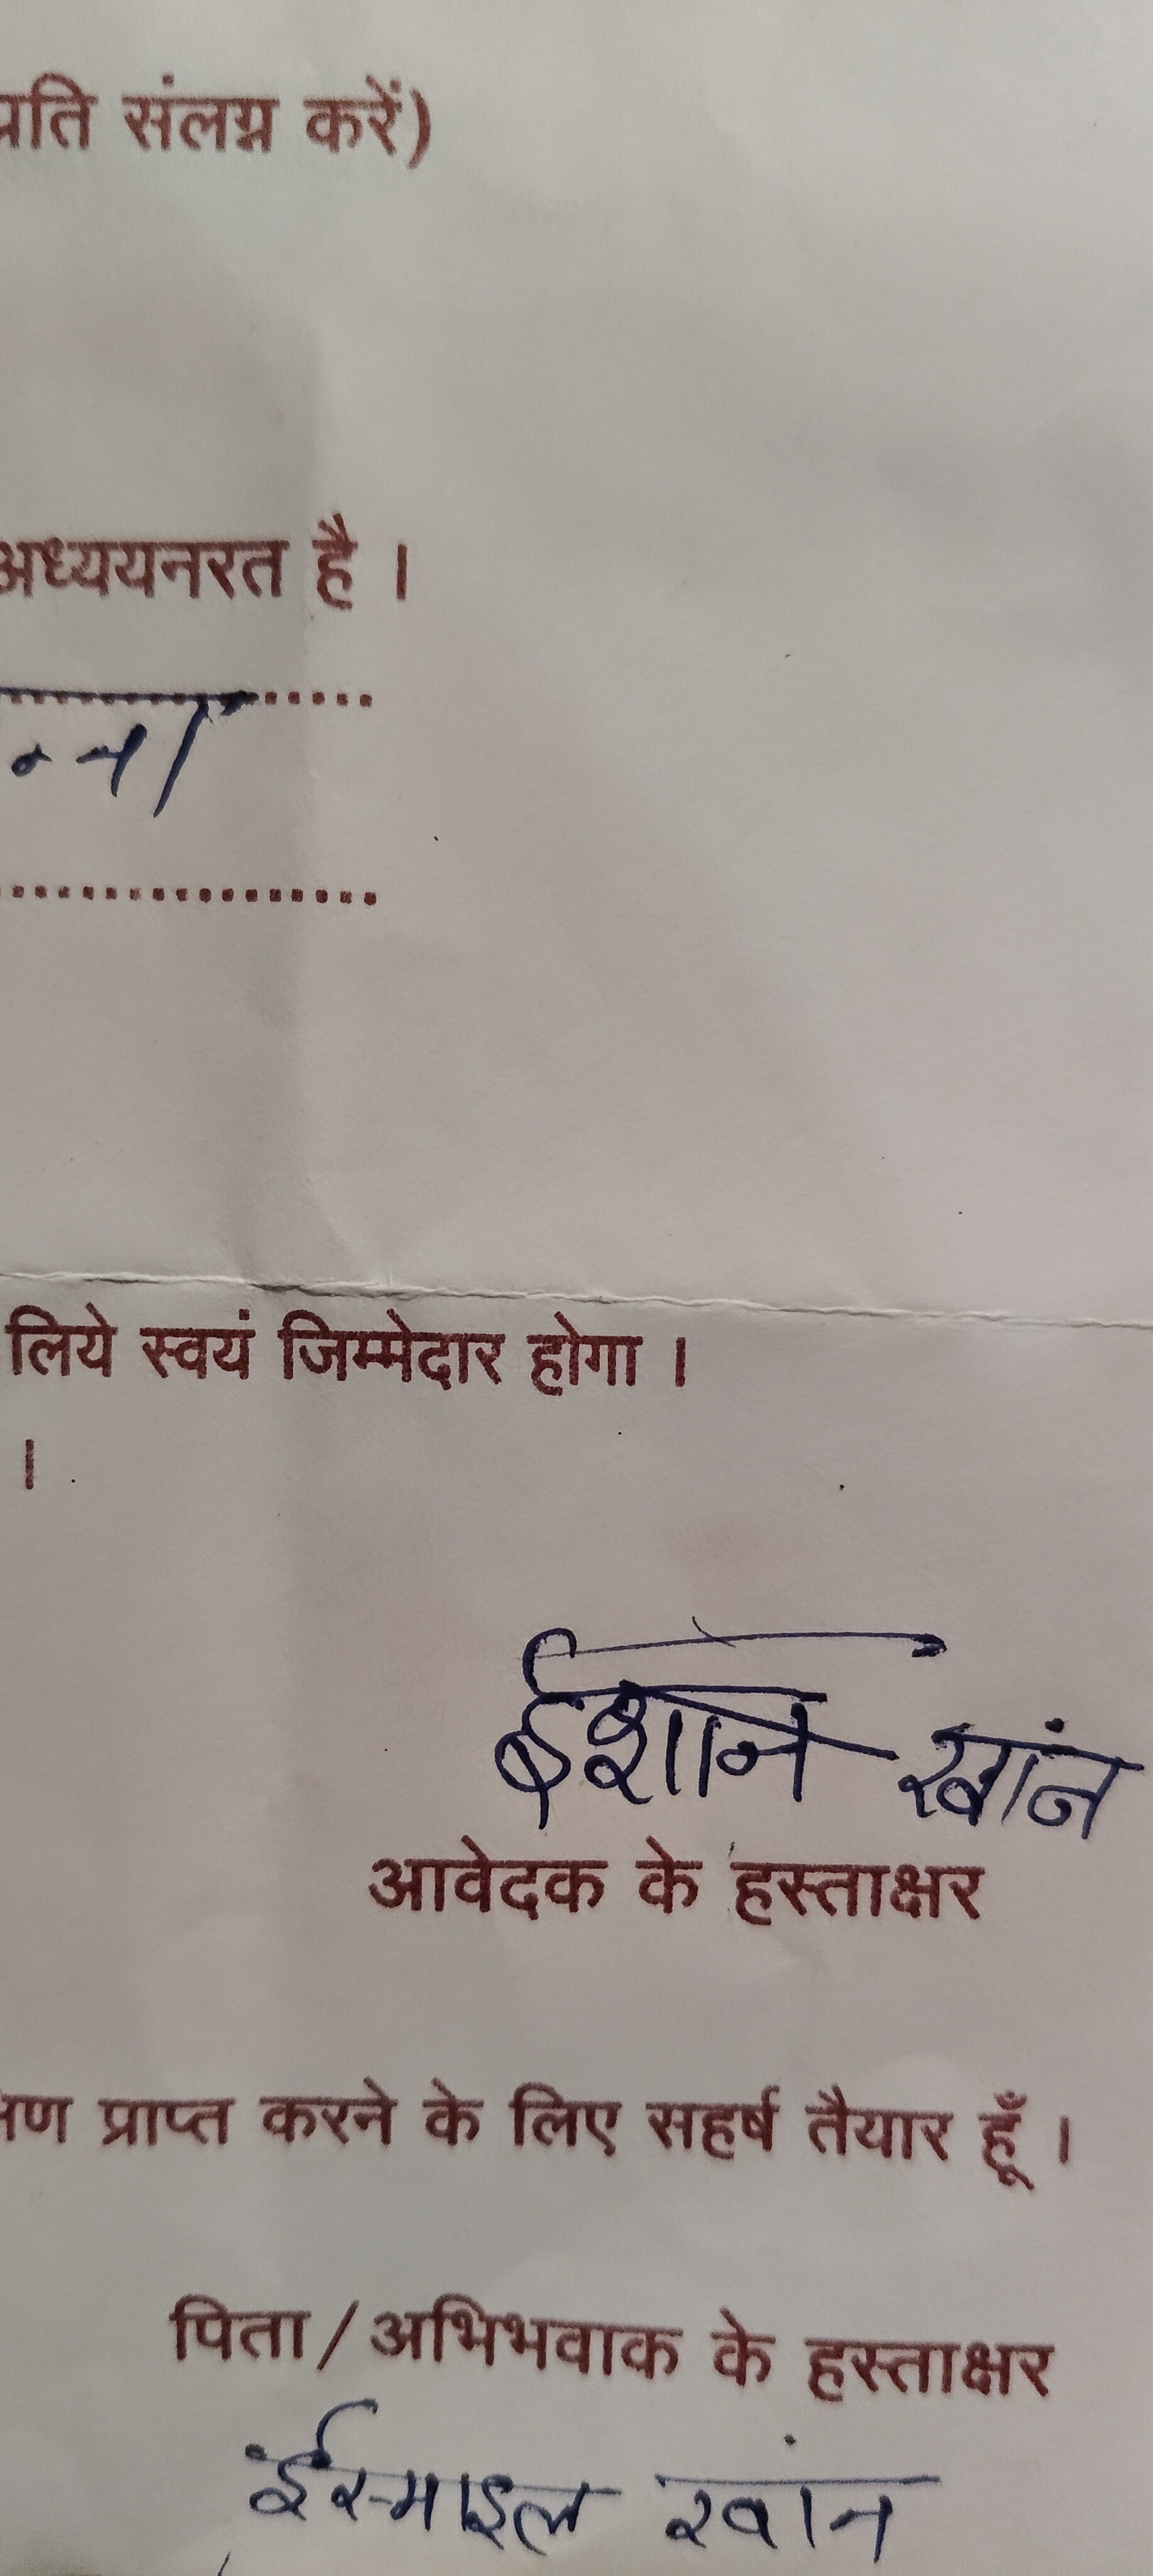 प्रति संलग्न करें)
अध्ययनरत है ।
लिये स्वयं जिम्मेदार होगा ।
।
ईशान खांन
आवेदक के हस्ताक्षर
प्राप्त करने के लिए सहर्ष तैयार हूँ ।
पिता/अभिभवाक के हस्ताक्षर
ईस्माइल खांन